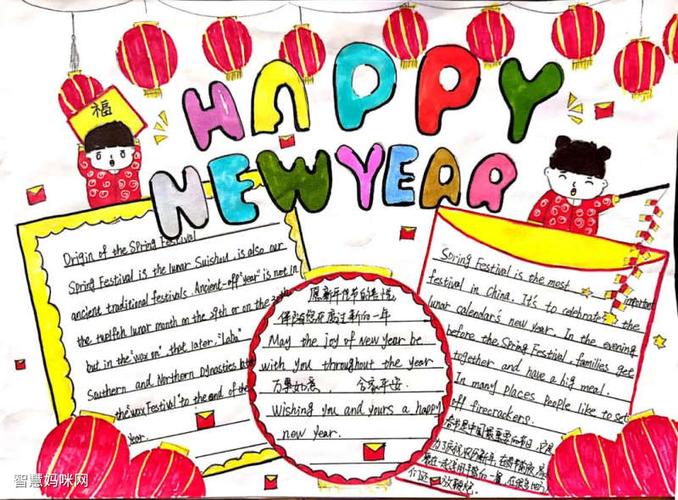 HAPPY
NEW YEAR
福
Origin of the Spring Festival
Spring Festival is the lunar Suishou, is also our
ancient traditional festivals. Ancient-off "year" is not in
the twelfth lunar month on the 29th or on the 30th
but in the "wax on", that later "laba"
Southern and Northern Dynasties
the "wax Festival" to the end of the
year.
愿新年
新的一年
May the joy of New year be
with you throughout the year
万事如意 合家平安.
Wishing you and yours a happy
new year.
Spring Festival is the most important
festival in China. It's to celebrate the
lunar calendar's new year. In the evening
before the Spring Festival, families get
together and have a big meal.
In many places people like to set
off firecrackers.
春节是中国最重要的节日,
智慧妈咪网